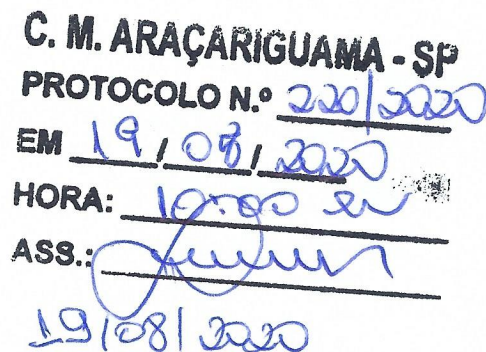 C. M. ARAÇARIGUAMA - SP
PROTOCOLO N.º 220/2020
EM 19 / 08 / 2020
HORA: 10:00
ASS.:
19/08/2020